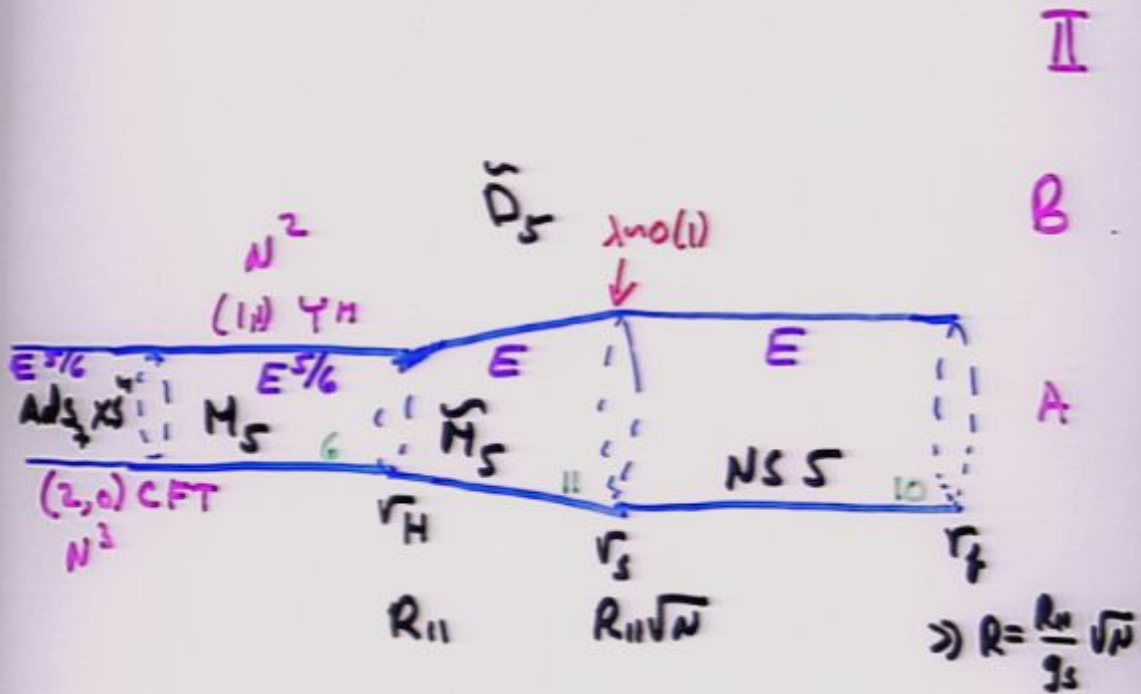 II
B
D̃5
λ~O(1)
N²
(1,1) YM
E^5/6
E^5/6
E
E
AdS7 x S⁴
M5
M̃5
NS5
A
6
11
10
(2,0) CFT
N³
r_H
r_s
r_f
R11
R11√N
>> R = R11/g_s √N